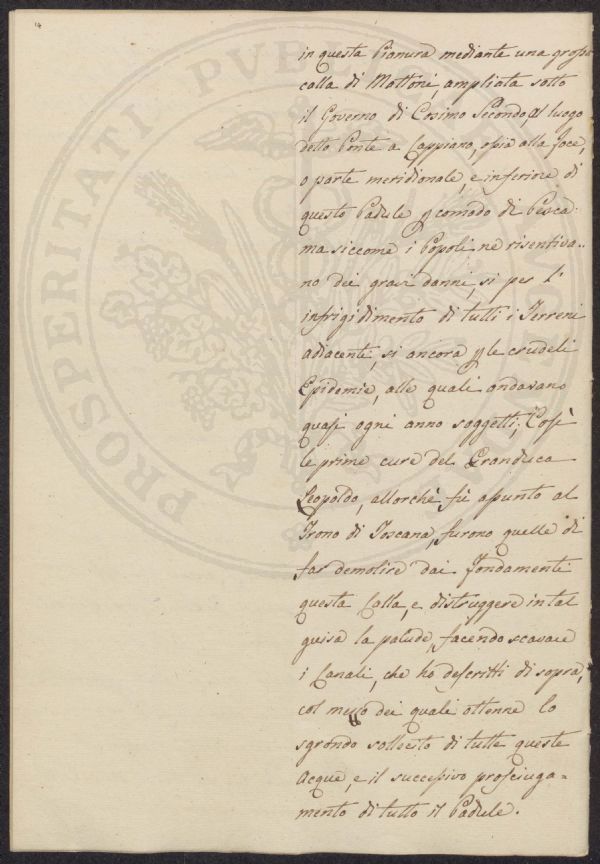 14
in questa Pianura mediante una grossa
calla di Mattoni, ampliata sotto
il Governo di Cosimo Secondo, al luogo
detto Ponte a Cappiano, ossia alla foce,
o parte meridionale, e inferiore di
questo Padule p comodo di Pesca:
ma siccome i Popoli ne risentiva-
no dei gravi danni, sì per l'
infrigidimento di tutti i Terreni
adiacenti, sì ancora p le crudeli
Epidemie, alle quali andavano
quasi ogni anno soggetti; Così
le prime cure del Granduca
Leopoldo, allorchè fù assunto al
Trono di Toscana, furono quelle di
far demolire dai fondamenti
questa Calla, e distruggere in tal
guisa la palude, facendo scavare
i Canali, che ho descritti di sopra,
col mezzo dei quali ottenne lo
sgrondo sollecito di tutte queste
Acque, e il successivo prosciuga-
mento di tutto il Padule.
PROSPERITATI PVB